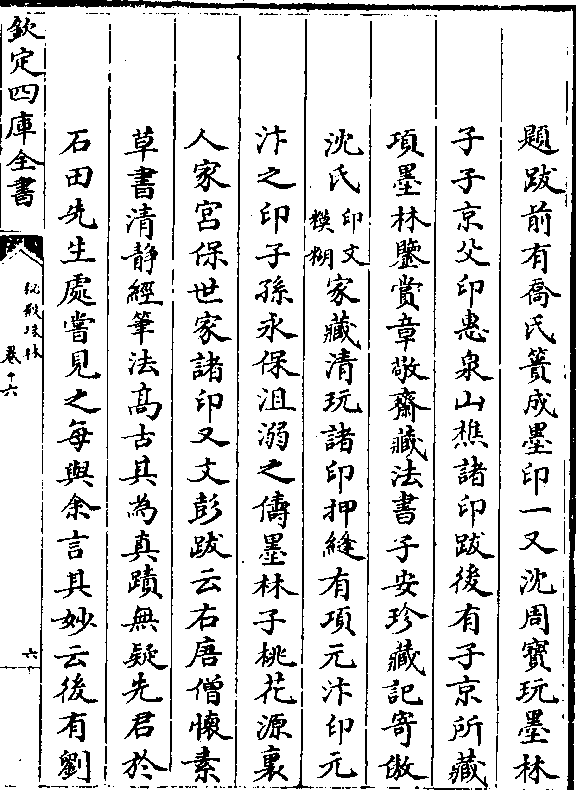 題跋前有喬氏簣成墨印一又沈周寳玩墨林
子子京父印惠泉山樵諸印跋後有子京所藏
項墨林鑒賞章敬齋藏法書子安珍藏記寄傲
沈氏印文模糊家藏清玩諸印押縫有項元汴印元
汴之印子孫永保沮溺之儔墨林子桃花源裏
人家宫保世家諸印又文彭跋云右唐僧懷素
草書清静經筆法髙古其為真蹟無疑先君於
石田先生處嘗見之每與余言其妙云後有劉
欽定四庫全書
秘殿珠林
卷十六
六